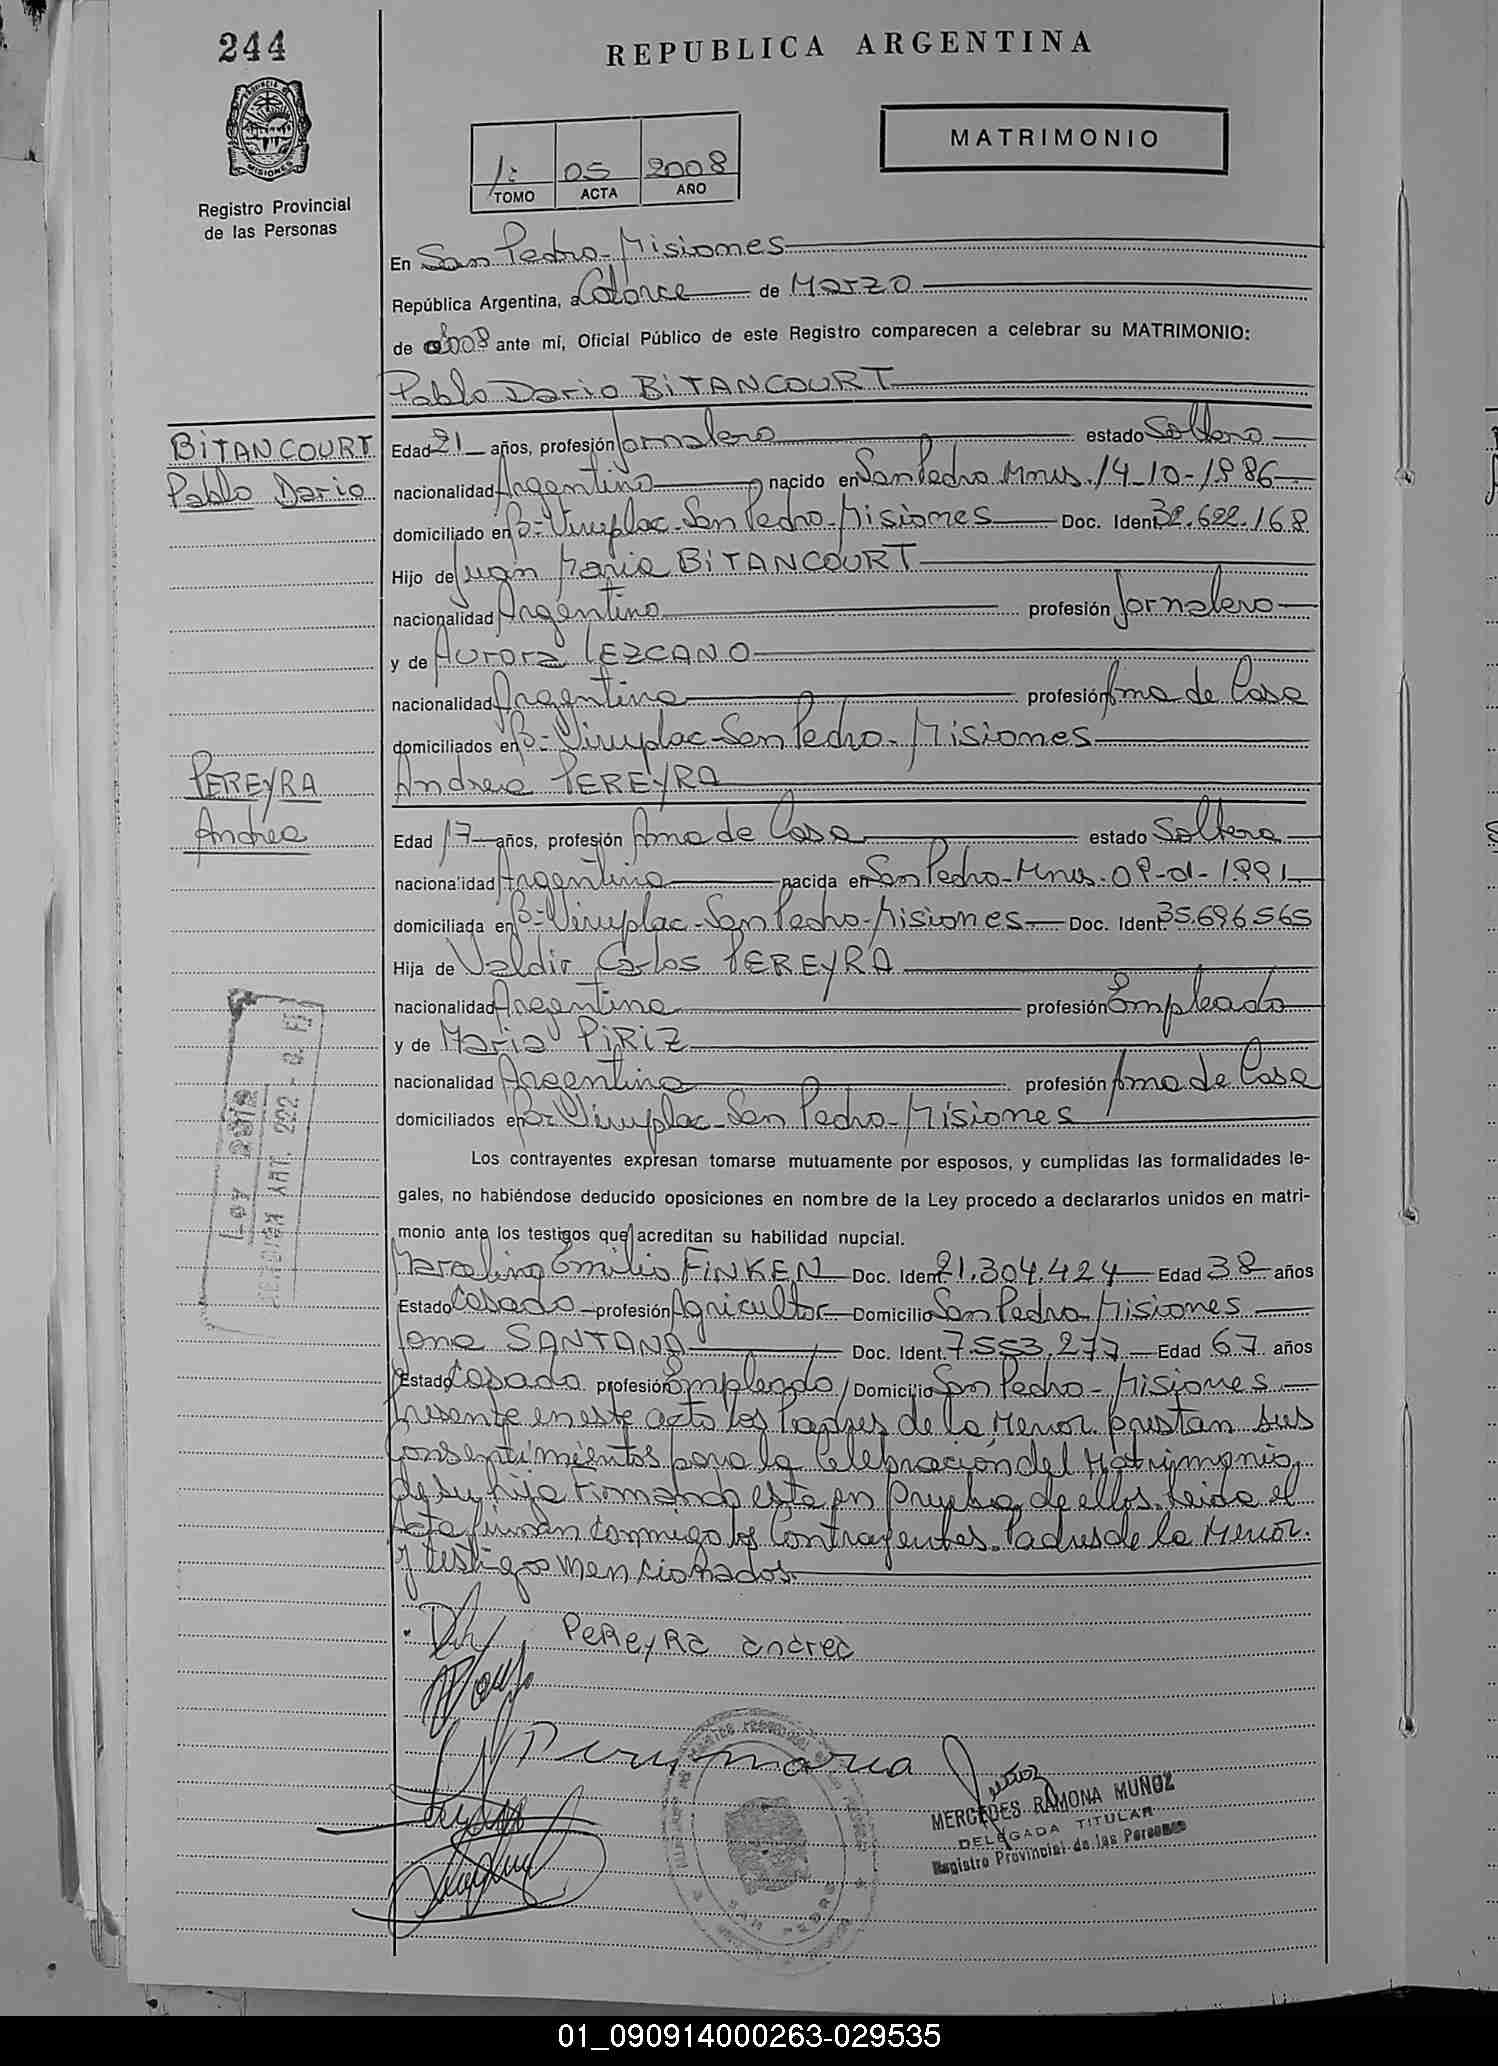 244
REPUBLICA ARGENTINA
MATRIMONIO
1: 05 2008
TOMO ACTA AÑO
PROVINCIA DE MISIONES
Registro Provincial
de las Personas
En San Pedro - Misiones
República Argentina, a Catorce de Marzo
de 2008 ante mí, Oficial Público de este Registro comparecen a celebrar su MATRIMONIO:
Pablo Dario BITANCOURT
BITANCOURT
Pablo Dario
Edad 21 años, profesión Jornalero estado Soltero
nacionalidad Argentino nacido en San Pedro Mnes. 14-10-1986
domiciliado en B= Viruplac - San Pedro - Misiones Doc. Ident. 32.622.168
Hijo de Juan Maria BITANCOURT
nacionalidad Argentino profesión Jornalero
y de Aurora LEZCANO
nacionalidad Argentina profesión Ama de Casa
domiciliados en B= Viruplac - San Pedro - Misiones
PEREYRA
Andrea
Andrea PEREYRA
Edad 17 años, profesión Ama de Casa estado Soltera
nacionalidad Argentina nacida en San Pedro - Mnes. 1991
domiciliada en B= Viruplac - San Pedro - Misiones Doc. Ident. 35.696.565
Hija de Valdir Carlos PEREYRA
nacionalidad Argentina profesión Empleado
y de Maria PIRIZ
nacionalidad Argentina profesión Ama de Casa
domiciliados en B= Viruplac - San Pedro - Misiones
Los contrayentes expresan tomarse mutuamente por esposos, y cumplidas las formalidades le-
gales, no habiéndose deducido oposiciones en nombre de la Ley procedo a declararlos unidos en matri-
monio ante los testigos que acreditan su habilidad nupcial.
Marcelino Emilio FINKEN Doc. Ident. 21.304.424 Edad 38 años
Estado Casado profesión Agricultor Domicilio San Pedro - Misiones
SANTANA Doc. Ident. 7.553.277 Edad 67 años
Estado Casado profesión Empleado Domicilio San Pedro - Misiones
Presente en este acto los Padres de la Menor prestan sus
consentimientos para la Celebracion del Matrimonio
de su hija Firmando esta en Prueba de ellos. Leida el
Acta firman conmigo los Contrayentes. Padres de la Menor.
y testigos mencionados.
PEREYRA andrea
maria
Muñoz
MERCEDES RAMONA MUÑOZ
DELEGADA TITULAR
Registro Provincial de las Personas
SAN PEDRO
Ley
ART. 222
01_090914000263-029535